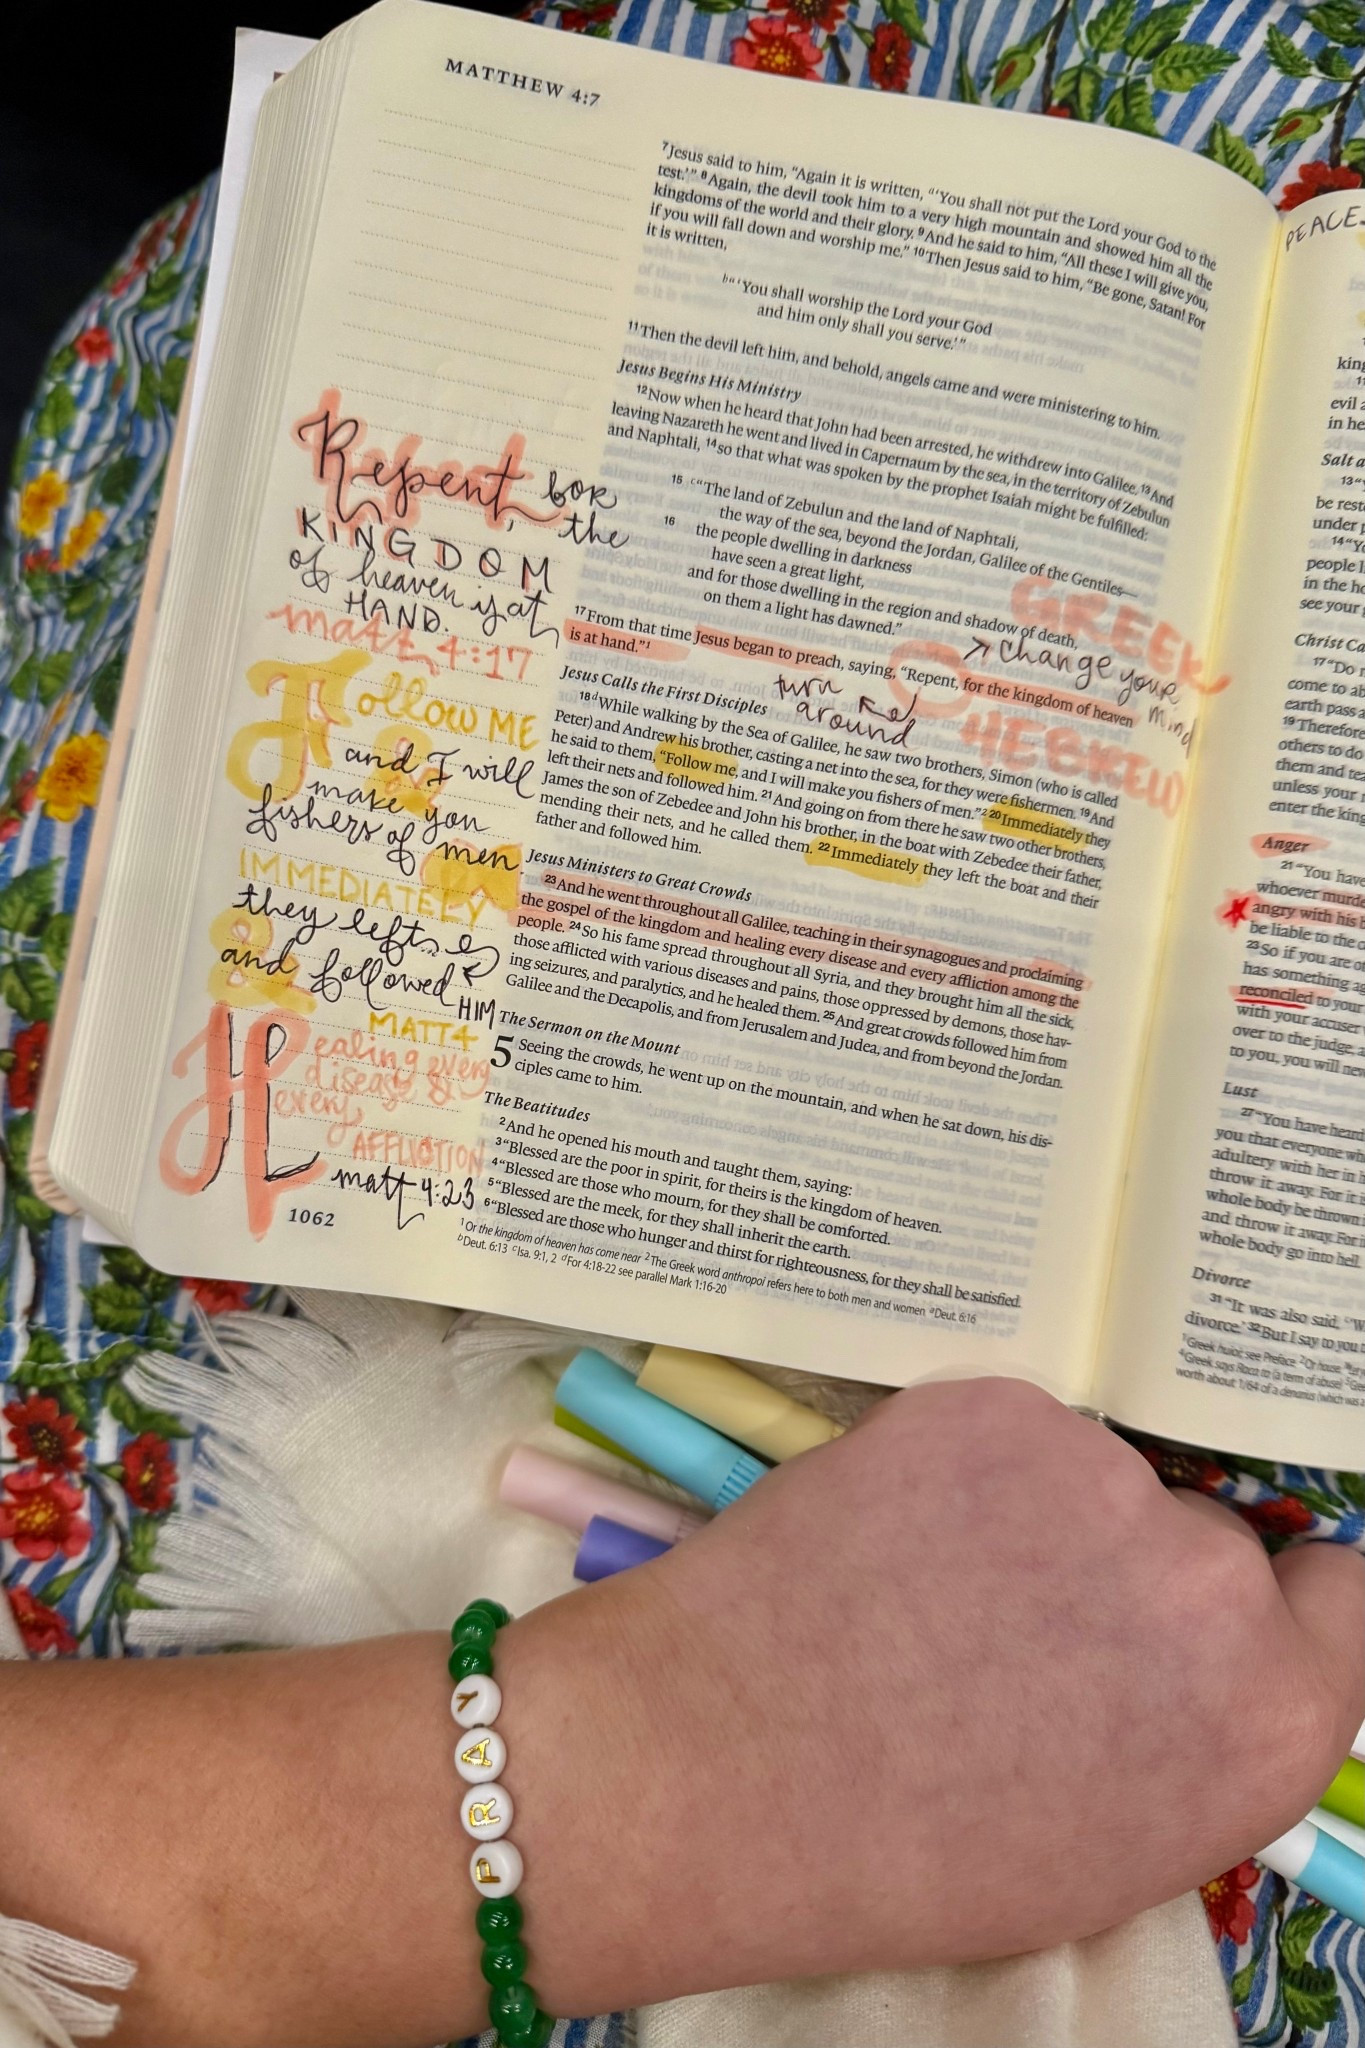 MATTHEW 4:7
7Jesus said to him, "Again it is written, a"'You shall not put the Lord your God to the
test.'" 8Again, the devil took him to a very high mountain and showed him all the
kingdoms of the world and their glory. 9And he said to him, "All these I will give you,
if you will fall down and worship me." 10Then Jesus said to him, "Be gone, Satan! For
it is written,
b"'You shall worship the Lord your God
and him only shall you serve.'"
11Then the devil left him, and behold, angels came and were ministering to him.
Jesus Begins His Ministry
12Now when he heard that John had been arrested, he withdrew into Galilee. 13And
leaving Nazareth he went and lived in Capernaum by the sea, in the territory of Zebulun
and Naphtali, 14so that what was spoken by the prophet Isaiah might be fulfilled:
15 c"The land of Zebulun and the land of Naphtali,
the way of the sea, beyond the Jordan, Galilee of the Gentiles—
16 the people dwelling in darkness
have seen a great light,
and for those dwelling in the region and shadow of death,
on them a light has dawned."
17From that time Jesus began to preach, saying, "Repent, for the kingdom of heaven
is at hand."1
Jesus Calls the First Disciples
18dWhile walking by the Sea of Galilee, he saw two brothers, Simon (who is called
Peter) and Andrew his brother, casting a net into the sea, for they were fishermen. 19And
he said to them, "Follow me, and I will make you fishers of men."2 20Immediately they
left their nets and followed him. 21And going on from there he saw two other brothers,
James the son of Zebedee and John his brother, in the boat with Zebedee their father,
mending their nets, and he called them. 22Immediately they left the boat and their
father and followed him.
Jesus Ministers to Great Crowds
23And he went throughout all Galilee, teaching in their synagogues and proclaiming
the gospel of the kingdom and healing every disease and every affliction among the
people. 24So his fame spread throughout all Syria, and they brought him all the sick,
those afflicted with various diseases and pains, those oppressed by demons, those hav-
ing seizures, and paralytics, and he healed them. 25And great crowds followed him from
Galilee and the Decapolis, and from Jerusalem and Judea, and from beyond the Jordan.
The Sermon on the Mount
5 Seeing the crowds, he went up on the mountain, and when he sat down, his dis-
ciples came to him.
The Beatitudes
2And he opened his mouth and taught them, saying:
3"Blessed are the poor in spirit, for theirs is the kingdom of heaven.
4"Blessed are those who mourn, for they shall be comforted.
5"Blessed are the meek, for they shall inherit the earth.
6"Blessed are those who hunger and thirst for righteousness, for they shall be satisfied.
1Or the kingdom of heaven has come near 2The Greek word anthropoi refers here to both men and women aDeut. 6:16
bDeut. 6:13 cIsa. 9:1, 2 dFor 4:18-22 see parallel Mark 1:16-20
1062
Repent, for
the
KINGDOM
of heaven is at
HAND.
matt 4:17
Follow ME
and I will
make you
fishers of men
IMMEDIATELY
they left
and followed
HIM
MATT 4
Healing every
disease &
every
AFFLICTION
matt 4:23
GREEK
change your
mind
turn
around
HEBREW
PEACE
king
11
evil a
in he
Salt a
13"
be rest
under
14"Yo
people l
in the ho
see your
Christ Ca
17"Do n
come to ab
earth pass a
19Therefore
others to do
them and tea
unless your
enter the king
Anger
21"You have
whoever murde
angry with his b
be liable to the
23So if you are of
has something ag
reconciled to your
with your accuser
over to the judge, a
to you, you will nev
Lust
27"You have heard
you that everyone wh
adultery with her in
throw it away. For it
whole body be thrown
and throw it away. For i
whole body go into hell.
Divorce
31"It was also said, 'W
divorce.' 32But I say to you
1Greek huioi; see Preface 2Or house,
4Greek says Raca to (a term of abuse)
worth about 1/64 of a denarius (which was a
PRAY